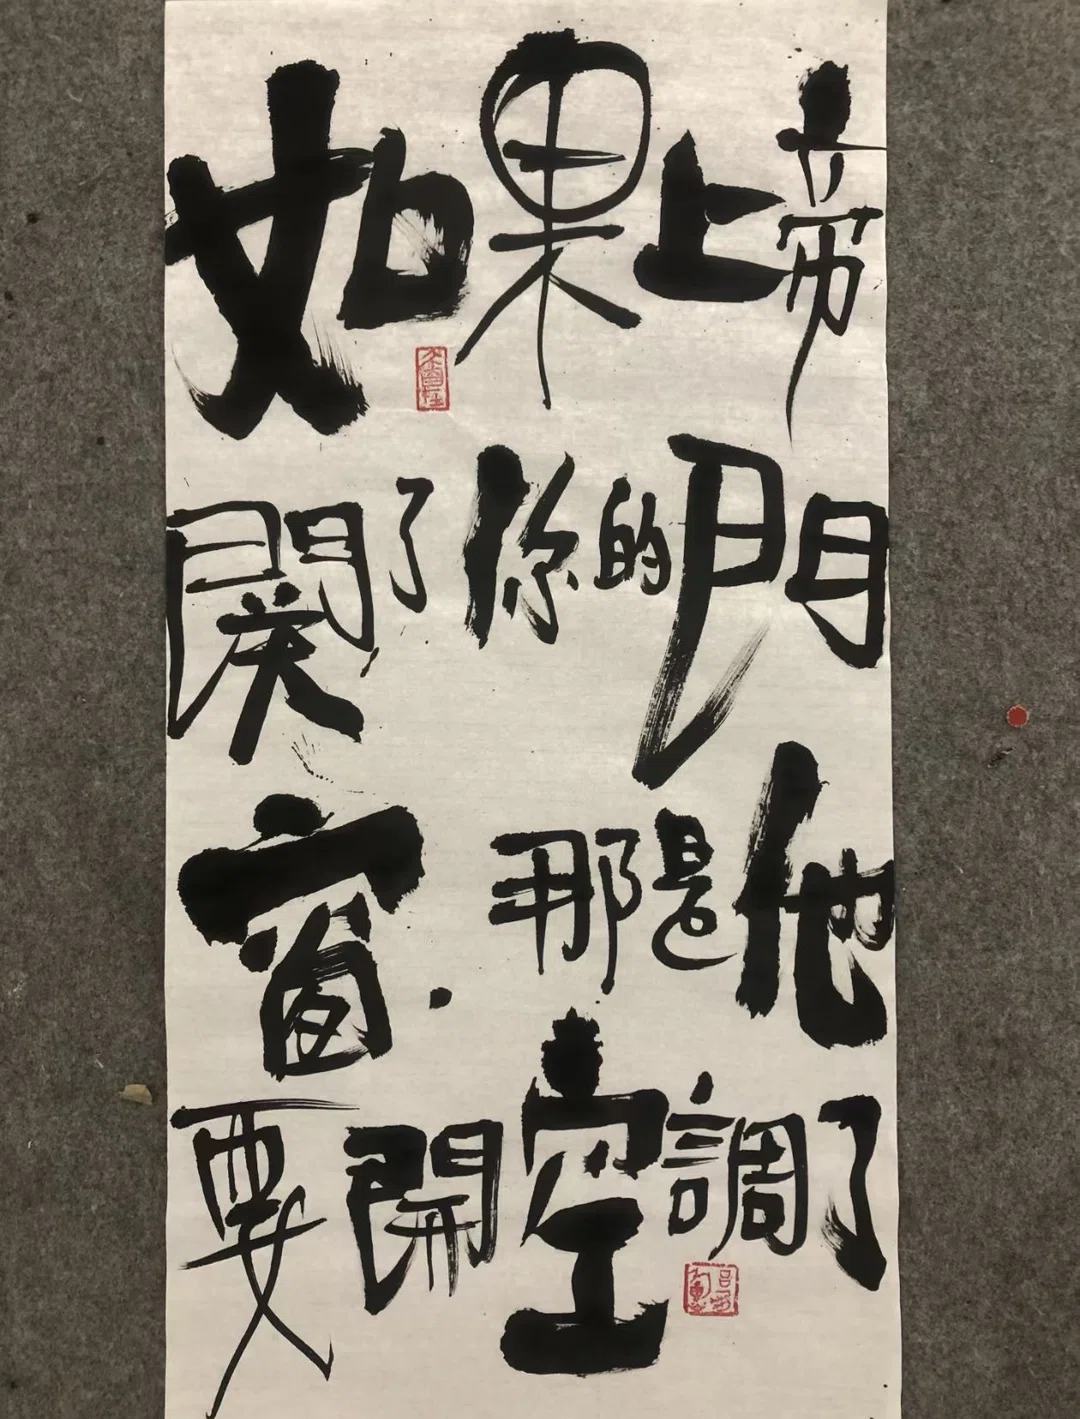 如果上帝
關了你的門
窗.那是他
要開空調了